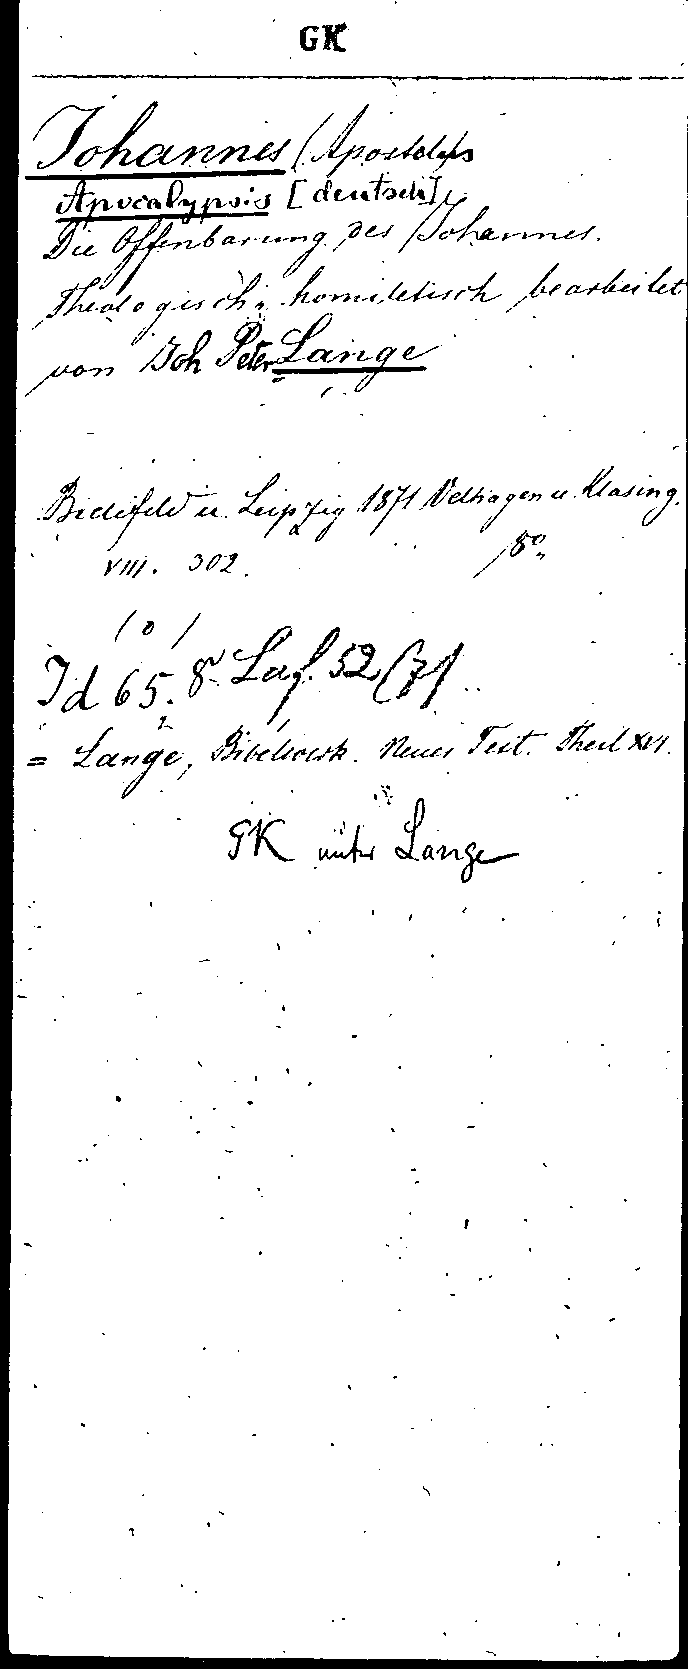 GK
Johannes (Apostolus
Apocalypsis [deutsch],
Die Offenbarung des Johannes.
Theologisch-homiletisch bearbeitet
von Joh Peter Lange
Bielefeld u. Leipzig 1871 Velhagen u. Klasing.
VIII. 302. 8°
(0)
Id 65. 8° Laf. 52 (71)
= Lange, Bibelwerk. Neues Test. Theil XVI.
GK unter Lange